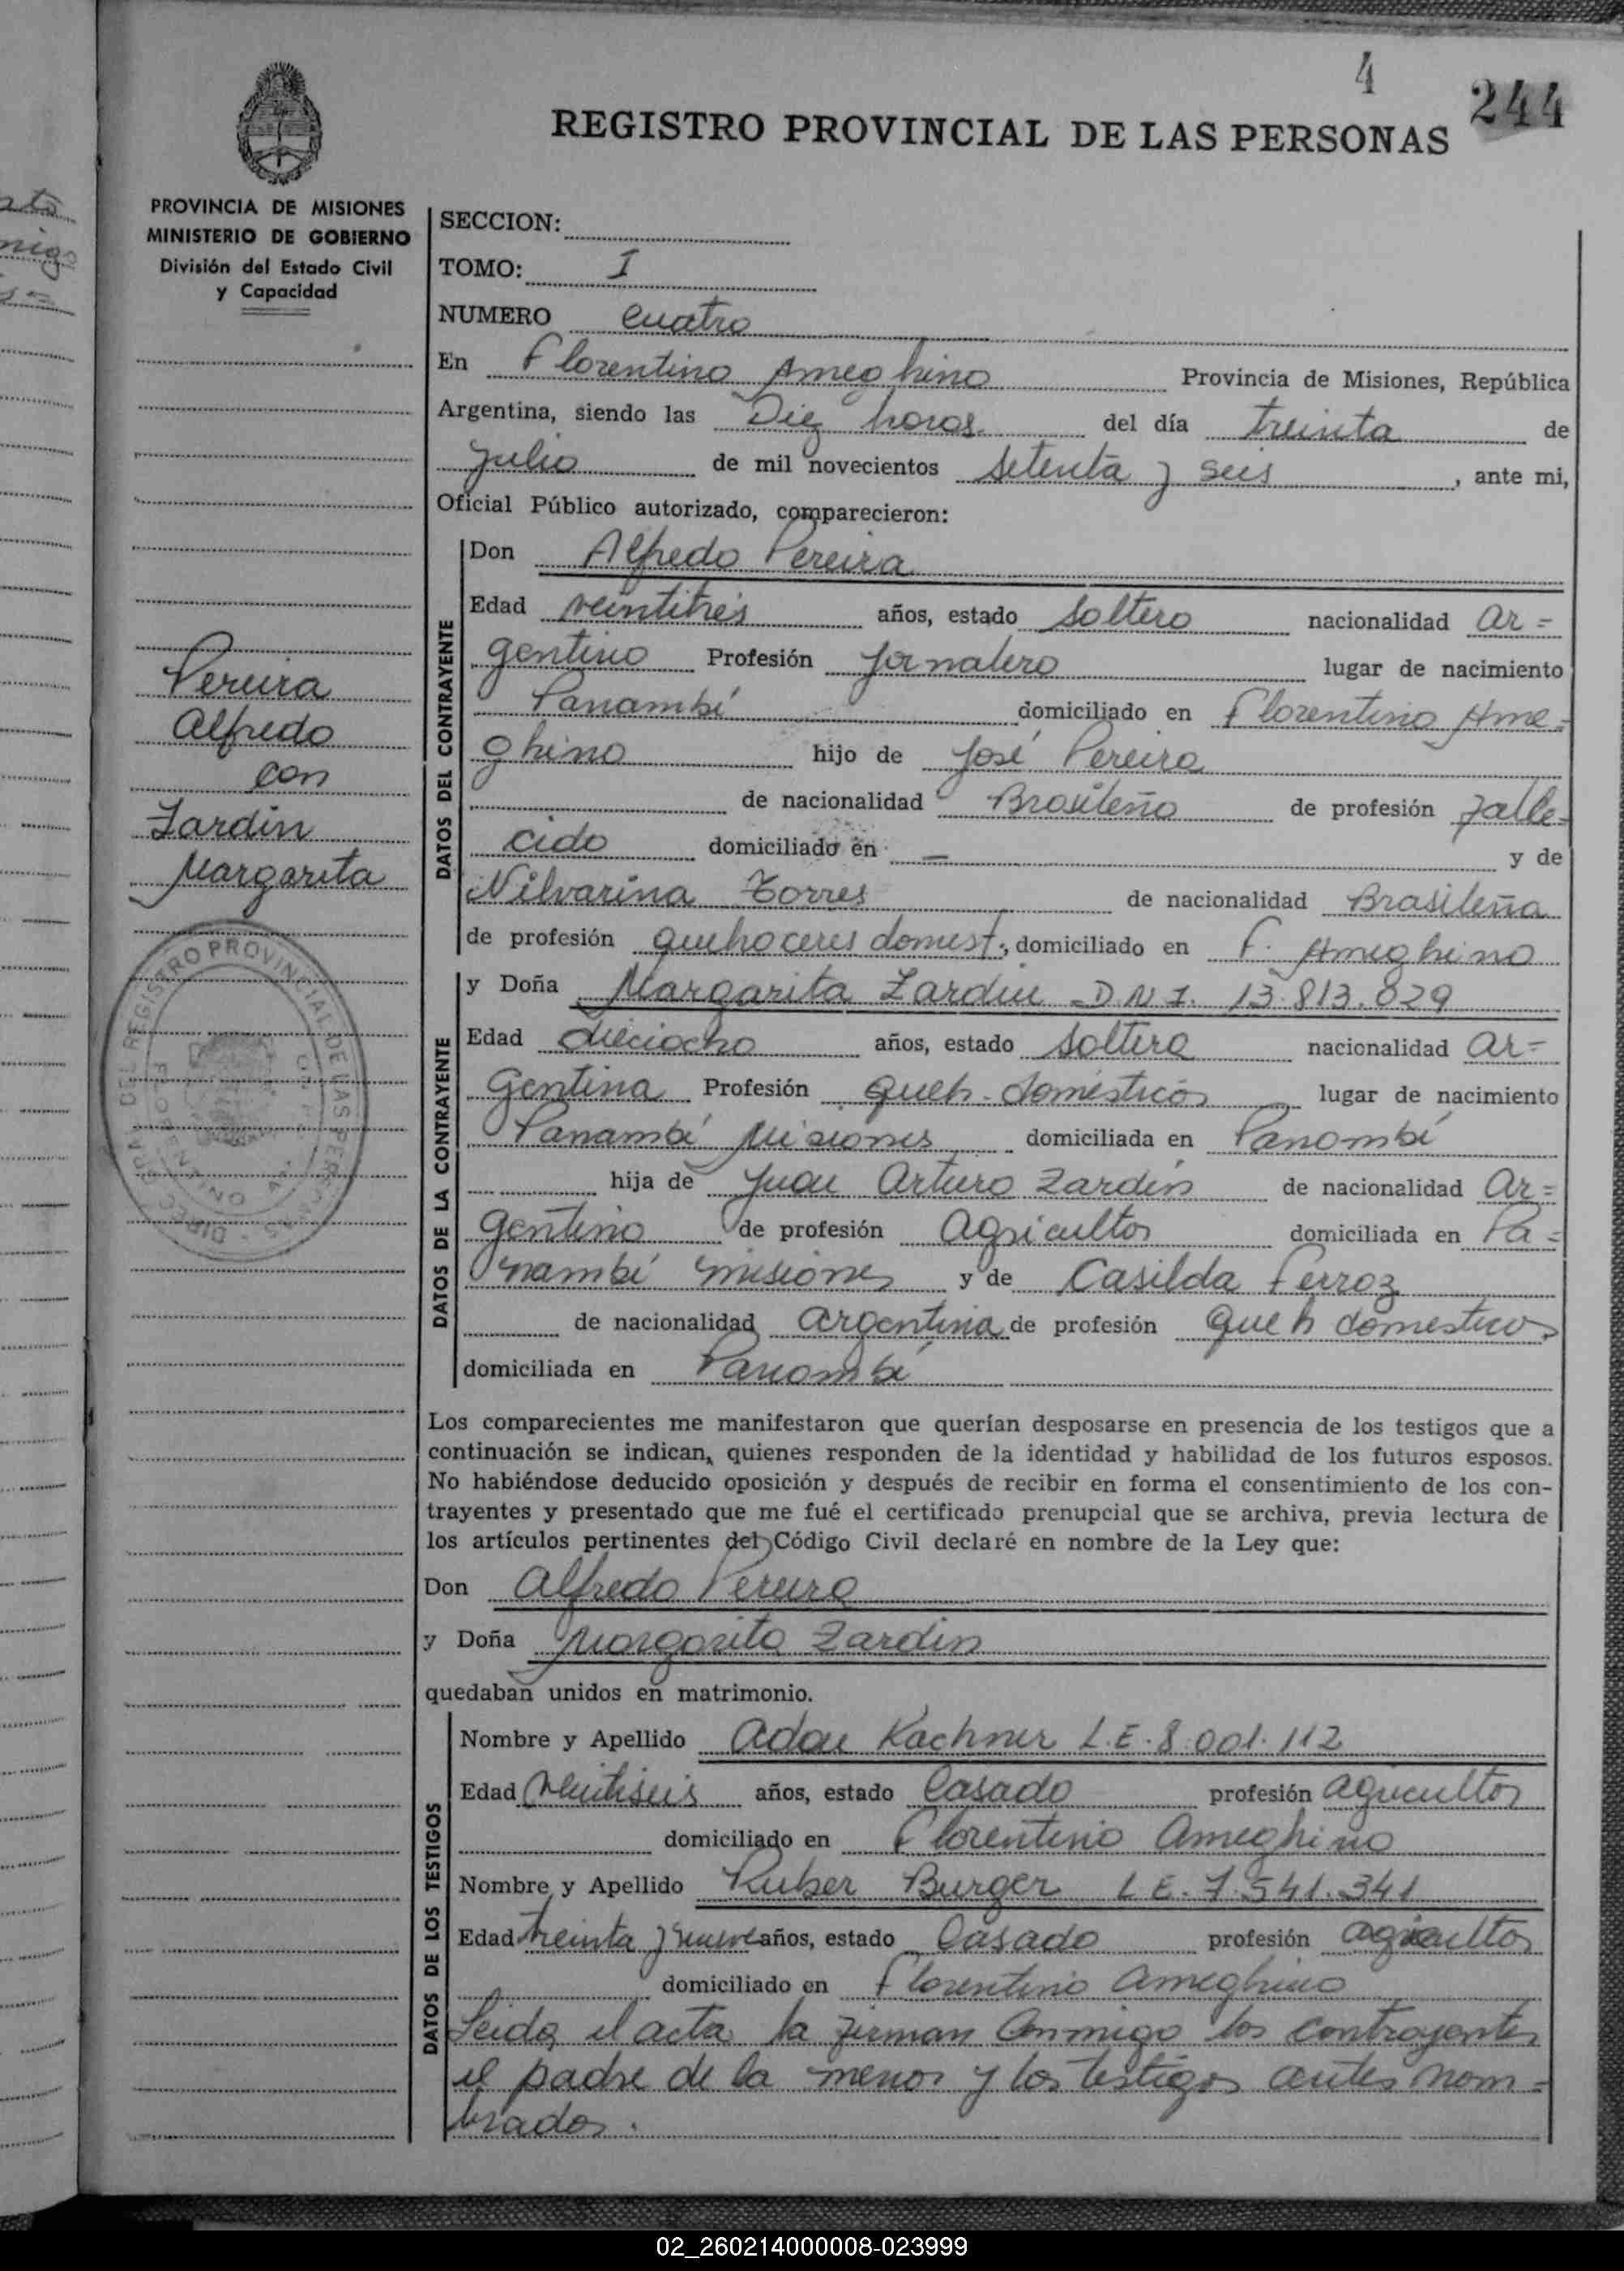 4
244
REGISTRO PROVINCIAL DE LAS PERSONAS
PROVINCIA DE MISIONES
MINISTERIO DE GOBIERNO
División del Estado Civil
y Capacidad
Pereira
Alfredo
con
Zardin
Margarita
SECCION:
TOMO: I
NUMERO cuatro
En Florentino Ameghino Provincia de Misiones, República
Argentina, siendo las Diez horas del día treinta de
Julio de mil novecientos setenta y seis, ante mi,
Oficial Público autorizado, comparecieron:
DATOS DEL CONTRAYENTE
Don Alfredo Pereira
Edad veintitres años, estado soltero nacionalidad ar=
gentino Profesión Jornalero lugar de nacimiento
Panambí domiciliado en Florentino Ame=
ghino hijo de José Pereira
de nacionalidad Brasileño de profesión falle-
cido domiciliado en — y de
Nilvarina Torres de nacionalidad Brasileña
de profesión quehaceres domest., domiciliado en F. Ameghino
DATOS DE LA CONTRAYENTE
y Doña Margarita Zardin D.N.I. 13.813.829
Edad dieciocho años, estado soltera nacionalidad ar=
gentina Profesión queh. domésticos lugar de nacimiento
Panambí Misiones domiciliada en Panambí
hija de Juan Arturo Zardin de nacionalidad ar=
gentino de profesión agricultor domiciliada en Pa=
nambí misiones y de Casilda Ferroz
de nacionalidad argentina de profesión queh domesticos
domiciliada en Panambí
Los comparecientes me manifestaron que querían desposarse en presencia de los testigos que a
continuación se indican, quienes responden de la identidad y habilidad de los futuros esposos.
No habiéndose deducido oposición y después de recibir en forma el consentimiento de los con-
trayentes y presentado que me fué el certificado prenupcial que se archiva, previa lectura de
los artículos pertinentes del Código Civil declaré en nombre de la Ley que:
Don Alfredo Pereira
y Doña Margarita Zardin
quedaban unidos en matrimonio.
DATOS DE LOS TESTIGOS
Nombre y Apellido Adan Kachner L.E. 8.001.112
Edad veintiseis años, estado Casado profesión agricultor
domiciliado en Florentino Ameghino
Nombre y Apellido Ruber Burger L.E. 7.541.341
Edad treinta y nueve años, estado Casado profesión agricultor
domiciliado en Florentino Ameghino
Leida el acta la firman conmigo los contrayentes
el padre de la menor y los testigos antes nom=
brados.
02_260214000008-023999